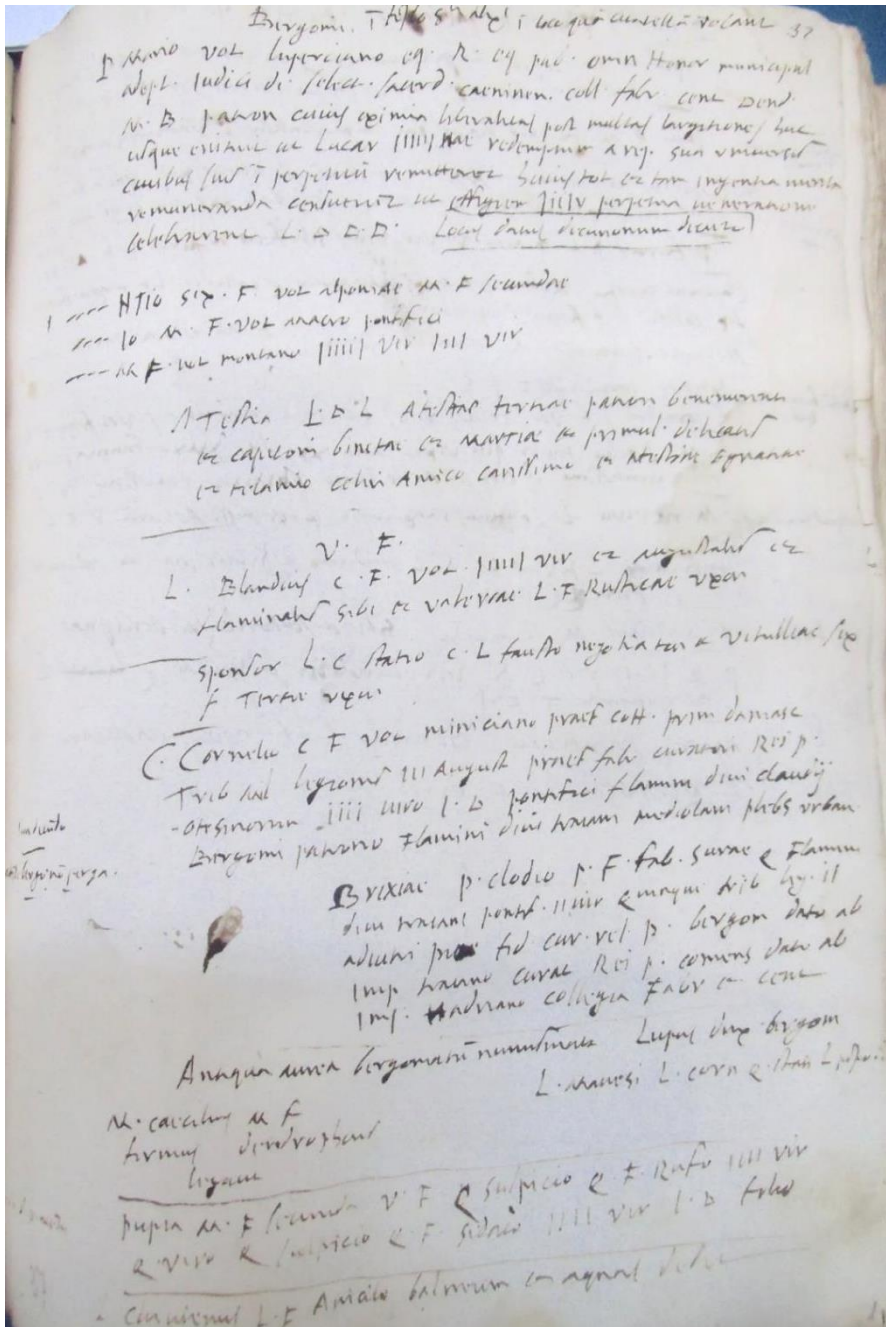 Bergomi. 37
P Mario vot luperciano eq. R. eq pub. omn Honor municipal
adept. Iudici de select. sacerd. caeninen. coll fabr cent Dend
M. B patron cuius eximia liberalitas post multas largitiones huc
usque enituit ut Lucar redemptum a rep. sua universis
civibus suis ī perpetuū remitteret huius tot et tam ingentia merita
remuneranda censuerunt ut effigiem perpetua veneratione
celebrarent L. D D. D. Locus datus decurionum decreto
HTIO sex. F. vot alponiae M. F secundae
Io M. F. vot Macro pontifici
M F. vot montano IIIIII vir IIII vir
A Testia L. D. L Atestiae tertiae patron benemerenti
et capitoni et Martiae et primul. delicatis
et telamio celeri Amico carissimo et Atestiae
V. F.
L. Blandius C. F. vot. IIIIII vir et augustalis et
flaminalis sibi et valeriae L. F Rusticae uxori
sponsor L. C statio C. L fausto negotiatori et vitulliae sex
f Tertiae uxori
C. Cornelio C F vot miniciano praef coh. prim damasc
Trib mil legionis III August praef fabr curatori Rei p.
otesinorum IIII viro I. D pontifici flamini divi claudij
Bergomi patrono Flamini divi traiani mediolani plebs urban
bergom perga.
Brixiae p. clodio p. F. fab. surae Q Flamini
divi traiani pontif. IIvir quinqu trib leg. II
adiutri piae fid cur. rei. p. bergom dato ab
Imp traiano curat Rei p. comens dato ab
Imp. Hadriano collegia Fabr et cent
Antiqua aurea bergomatū numismata Lupus dux bergom
L. Mavesi L. corn Q
M. caecilius M F
firmus dendrophoris
legavit
pupia M. F secunda V. F Q sulpicio Q. F. Rufo IIII vir
Q. viro Q sulpicio Q F. sidonio IIII vir I. D filio
L. F Amico balneum et aquas